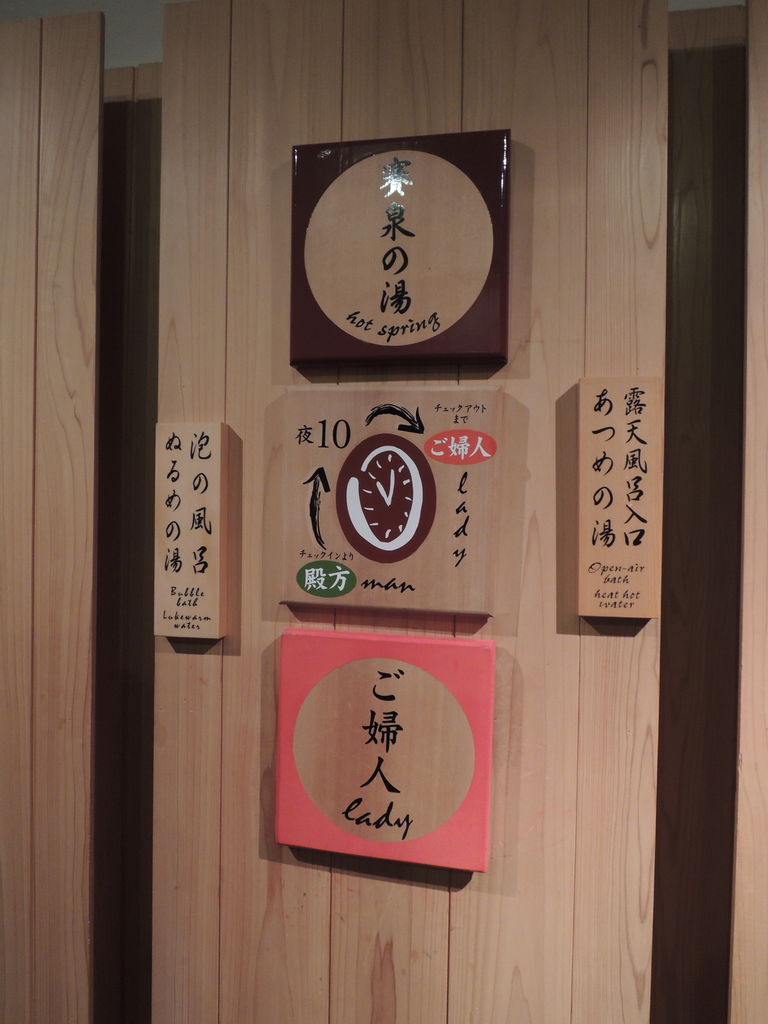 賽泉の湯
hot spring
チェックアウト
まで
夜10
ご婦人
lady
チェックインより
殿方 man
泡の風呂
ぬるめの湯
Bubble
bath
Lukewarm
water
露天風呂入口
あつめの湯
Open-air
bath
heat hot
water
ご婦人
lady